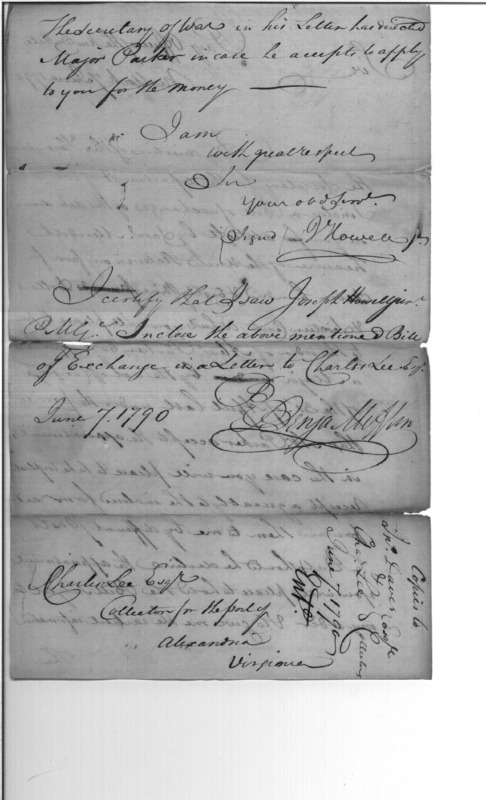 The secretary of War in his Letter has directed
Major Parker in case he accepts to apply
to you for the money —
I am
with great respect
Sir
your obd. Servt.
Signd J Howell jr.
I certify that I saw Joseph Howell junr.
P.M.G. Inclose the above mentioned Bill
of Exchange in a Letter to Charles Lee Esqr.
June 7. 1790 Benja Mifflin
Charles Lee Esqr.
Collector for the port of
Alexandria
Virginia
Copies to
Jno. Davis Esqr
Chas. Lee
Collectors
June 7 1790